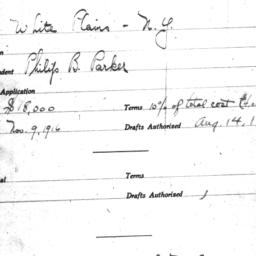 White Plains - N.Y.
dent Philip B. Parker
Application
$18,000 Terms 10% of total cost
Nov. 9, 1916 Drafts Authorized Aug. 14, 1
al Terms
Drafts Authorized